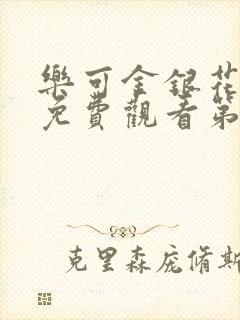 樂可金銀花
免費觀看第
克里森庞脩斯